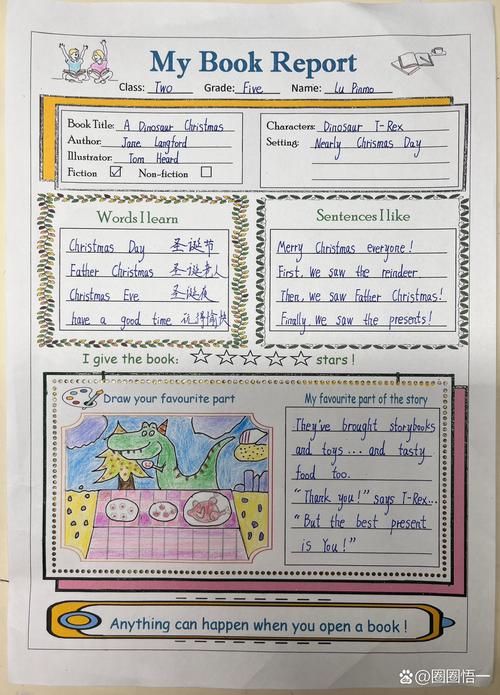 My Book Report
Class: Two Grade: Five Name: Lu Pinmo
Book Title: A Dinosaur Christmas
Author: Jane Langford
Illustrator: Tom Heard
Fiction ☑ Non-fiction ☐
Characters: Dinosaur T-Rex
Setting: Nearly Chrismas Day
Words I learn
Christmas Day 圣诞节
Father Christmas 圣诞老人
Christmas Eve 圣诞夜
have a good time 玩得愉快
Sentences I like
Merry Christmas everyone!
First, we saw the reindeer
Then, we saw Father Christmas!
Finally, we saw the presents!
I give the book: ☆☆☆☆☆ stars !
Draw your favourite part
My favourite part of the story
They've brought storybooks
and toys ... and tasty
food too.
"Thank you!" says T-Rex...
"But the best present
is You!"
Anything can happen when you open a book !
@圈圈悟一